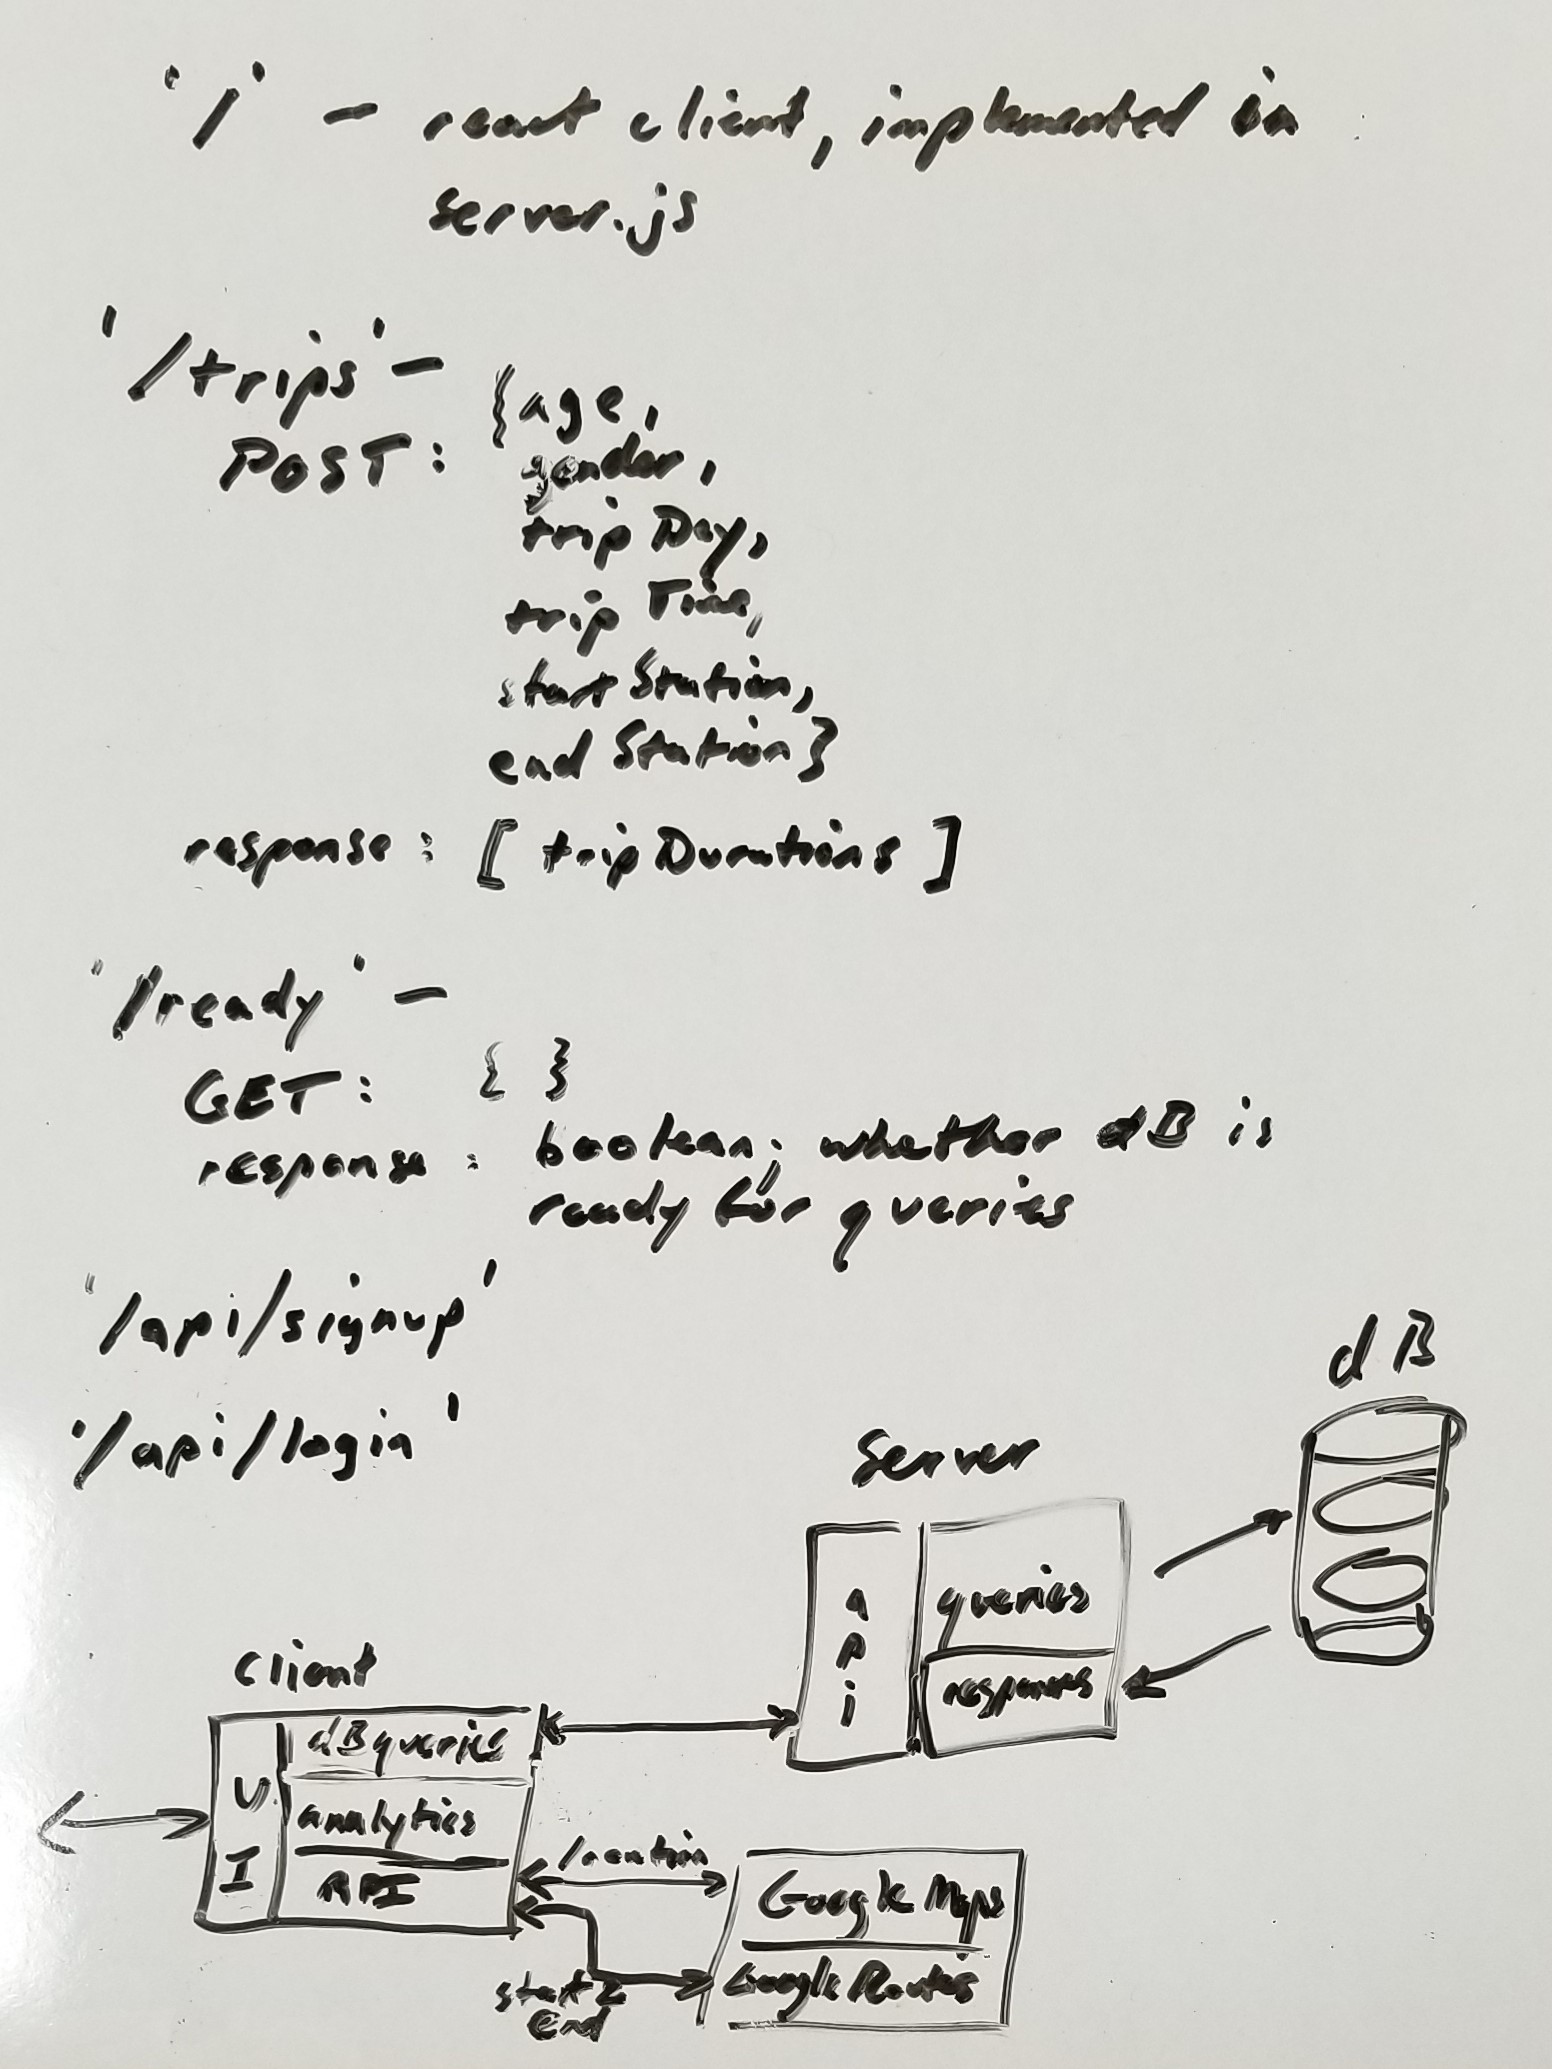 '/' - react client, implemented in
server.js
'/trips' -
POST: {age,
gender,
tripDay,
tripTime,
startStation,
endStation}
response: [tripDurations]
'/ready' -
GET: { }
response: boolean; whether dB is
ready for queries
'/api/signup'
'/api/login'
dB
Server
api
queries
responses
client
UI
dBqueries
analytics
API
location
Google Maps
Google Routes
start &
End